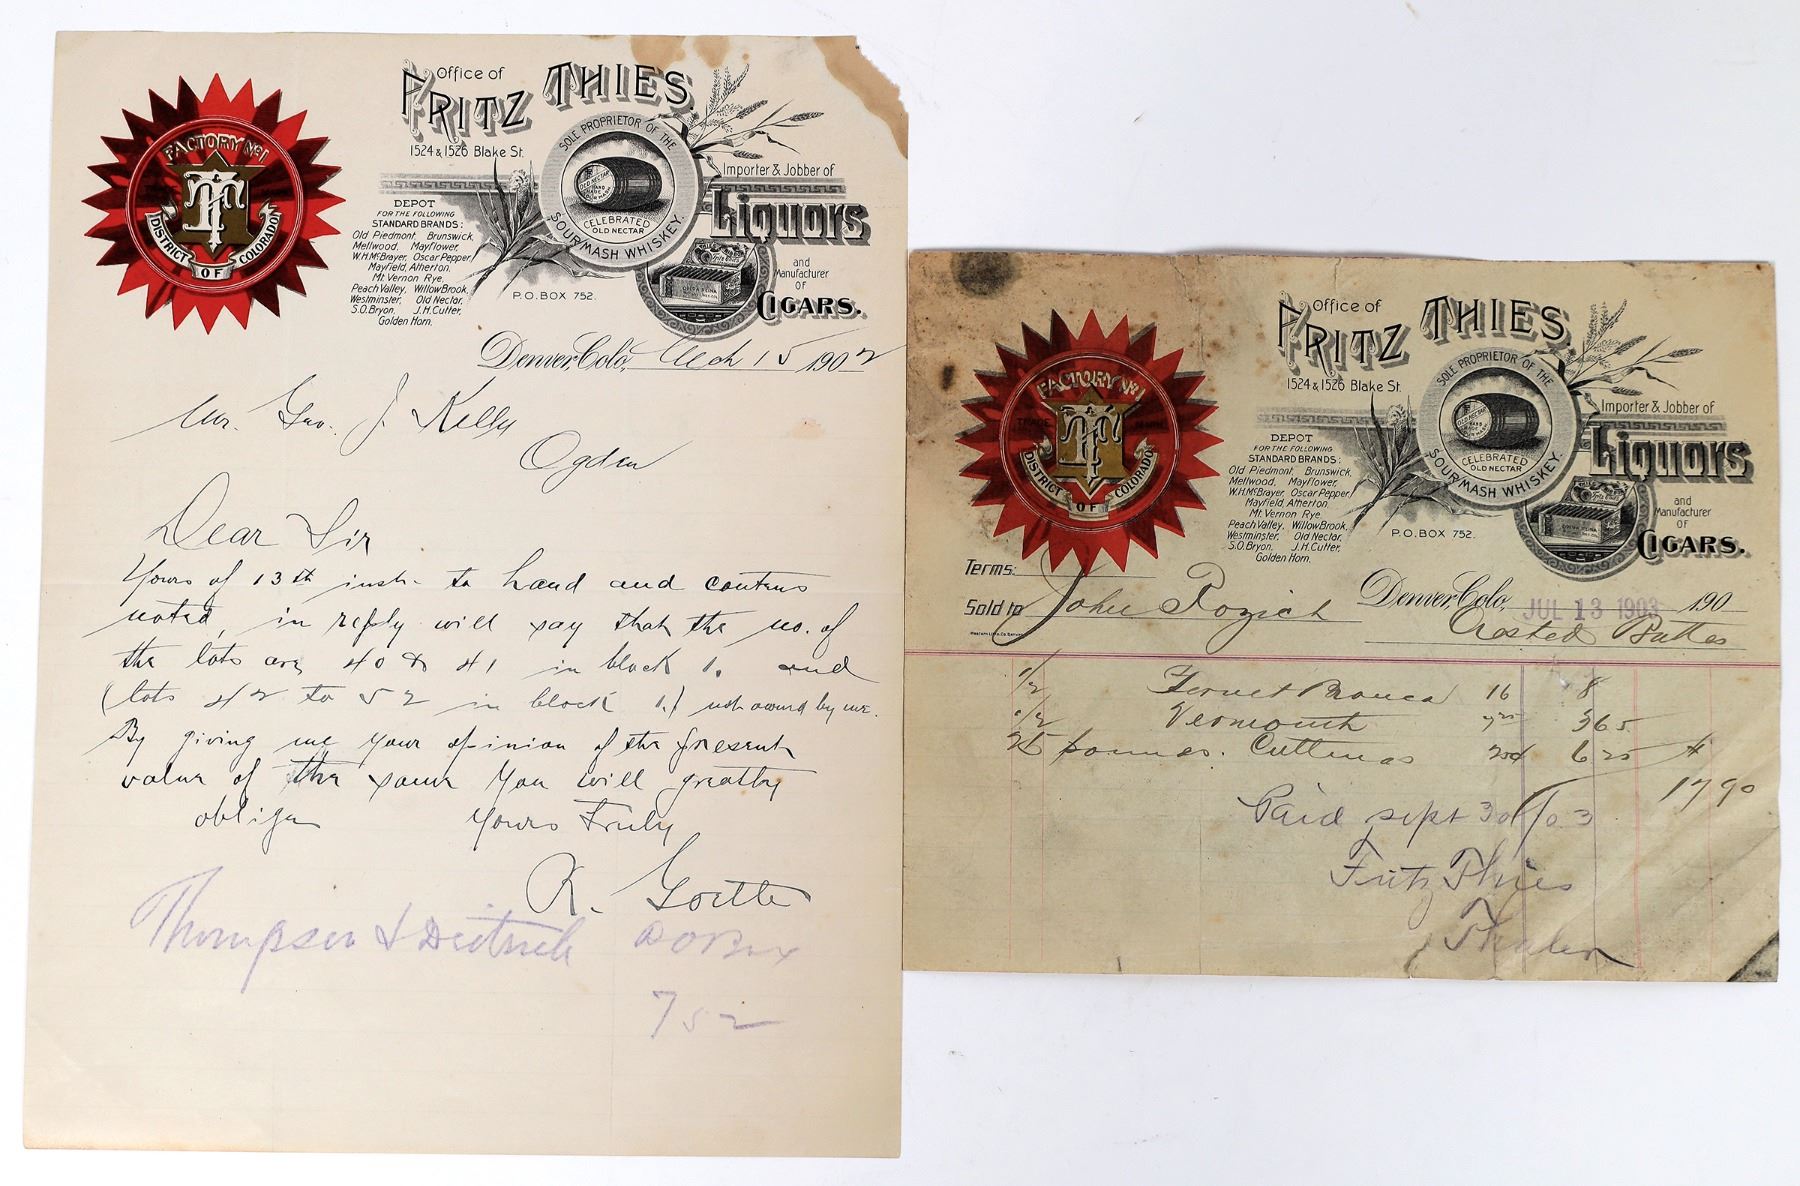 FACTORY No 1
DISTRICT OF COLORADO
Office of
FRITZ THIES.
1524 & 1526 Blake St.
SOLE PROPRIETOR OF THE
OLD NECTAR
HAND MADE
SOUR MASH
CELEBRATED
OLD NECTAR
SOUR MASH WHISKEY.
Importer & Jobber of
Liquors
and
Manufacturer
OF
CIGARS.
DEPOT
FOR THE FOLLOWING
STANDARD BRANDS:
Old Piedmont, Brunswick,
Mellwood, Mayflower,
W.H.McBrayer, Oscar Pepper,
Mayfield, Atherton,
Mt. Vernon Rye,
Peach Valley, Willow Brook,
Westminster, Old Nectar,
S.O.Bryon, J.H.Cutter,
Golden Horn.
P.O.BOX 752.
Denver, Colo, Mch 15 1902
Mr. Geo. J. Kelly
Ogden
Dear Sir
Yours of 13th inst. to hand and contens
noted, in reply will say that the no. of
the lots are 40 & 41 in block 1. and
(lots 42 to 52 in block 1.) not owned by me.
By giving me your opinion of the present
value of the same you will greatly
oblige Yours Truly
K. Goettle
Thompson & Dietrich P O Box
752
FACTORY No 1
TRADE MARK
DISTRICT OF COLORADO
Office of
FRITZ THIES.
1524 & 1526 Blake St.
SOLE PROPRIETOR OF THE
OLD NECTAR
HAND MADE
SOUR MASH
CELEBRATED
OLD NECTAR
SOUR MASH WHISKEY.
Importer & Jobber of
Liquors
and
Manufacturer
OF
CIGARS.
DEPOT
FOR THE FOLLOWING
STANDARD BRANDS:
Old Piedmont, Brunswick,
Mellwood, Mayflower,
W.H.McBrayer, Oscar Pepper,
Mayfield, Atherton,
Mt. Vernon Rye,
Peach Valley, Willow Brook,
Westminster, Old Nectar,
S.O.Bryon, J.H.Cutter,
Golden Horn.
P.O.BOX 752.
Terms:
Denver, Colo, JUL 13 1903 190
Sold to John Rozich Crested Buttes
1/2 Fernet Branca 16 8
1/2 Vermouth 365
25 pounds. Cuttings 25¢ 6 25
17 90
Paid sept 30/03
Fritz Thies